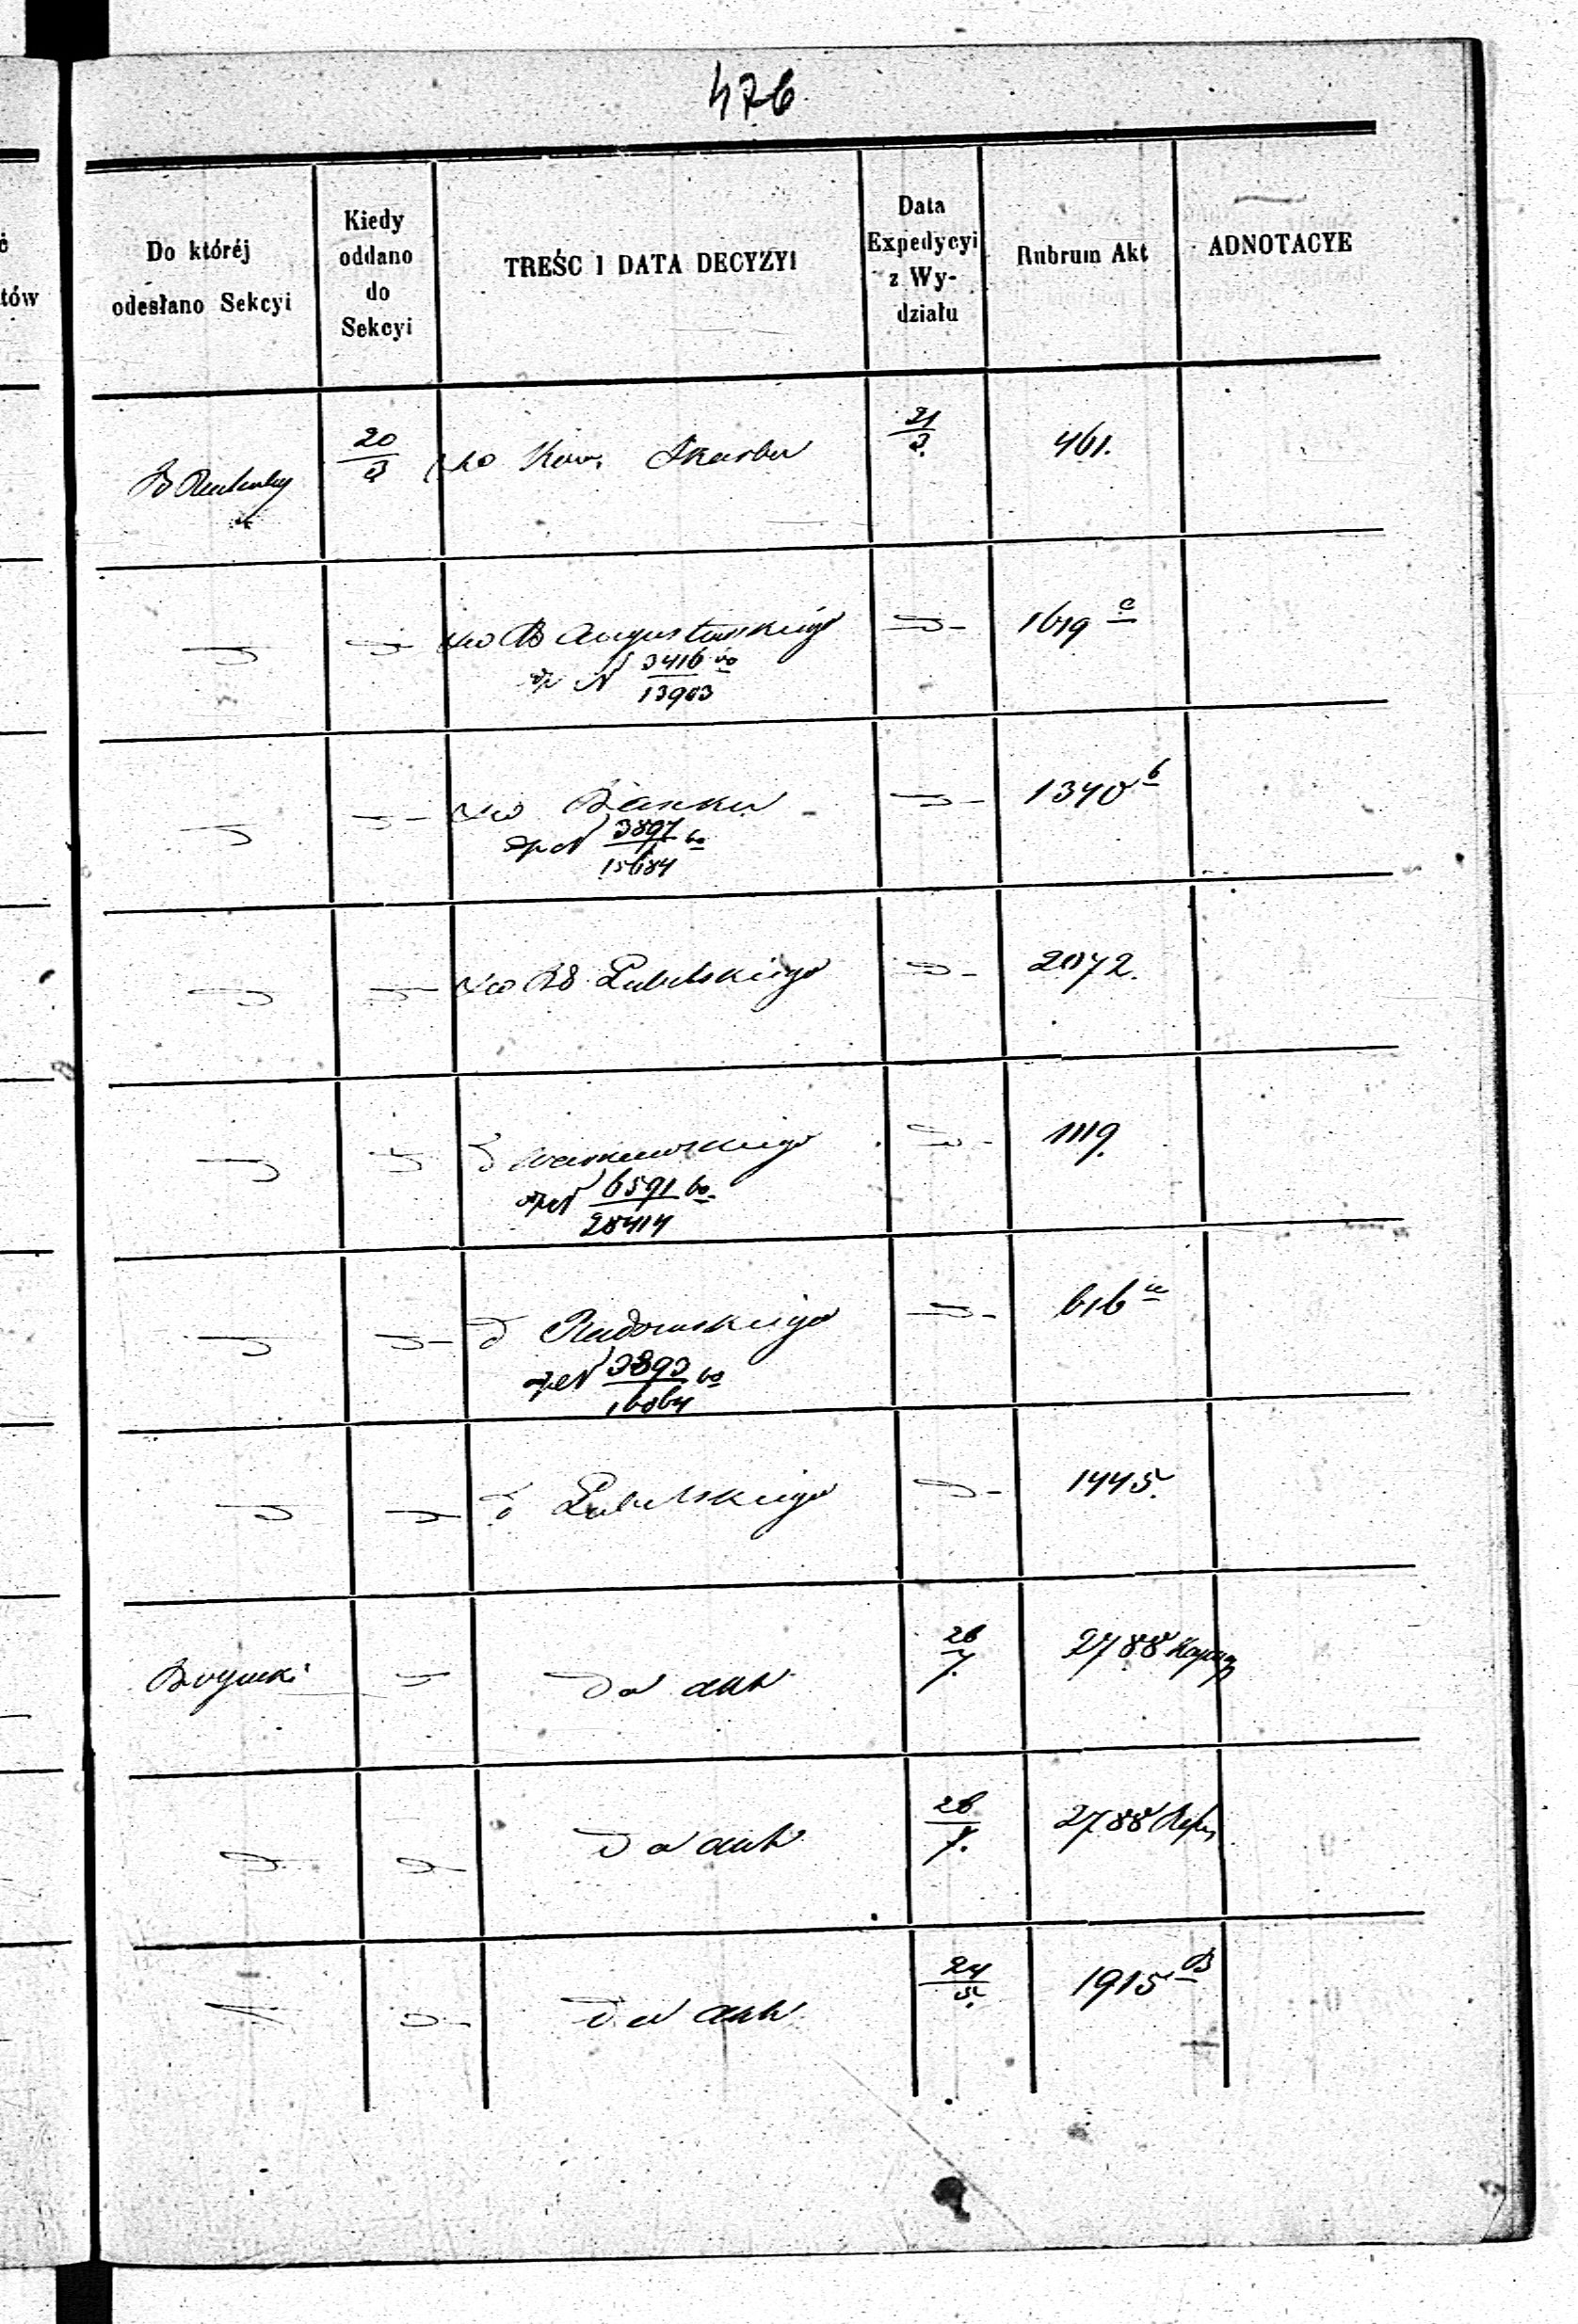 476
ć
tów
Do któréj
odesłano Sekcyi
Kiedy
oddano
do
Sekcyi
TREŚC I DATA DECYZYI
Data
Expedycyi
z Wy-
działu
Rubrum Akt
ADNOTACYE
20/3
Skarbu
21/3
461.
Augustowskiego
N 3416/13903
1619 c
Banku
N 3897/15684
1340 b
Lubelskiego
2072.
Warszawskiego
N 6591/28414
1119.
d Radomskiego
N 3893/16064
616 a
d Lubelskiego
1445.
do akt
26/7.
2788
do akt
26/7.
2788
do akt
24/5.
1915 B